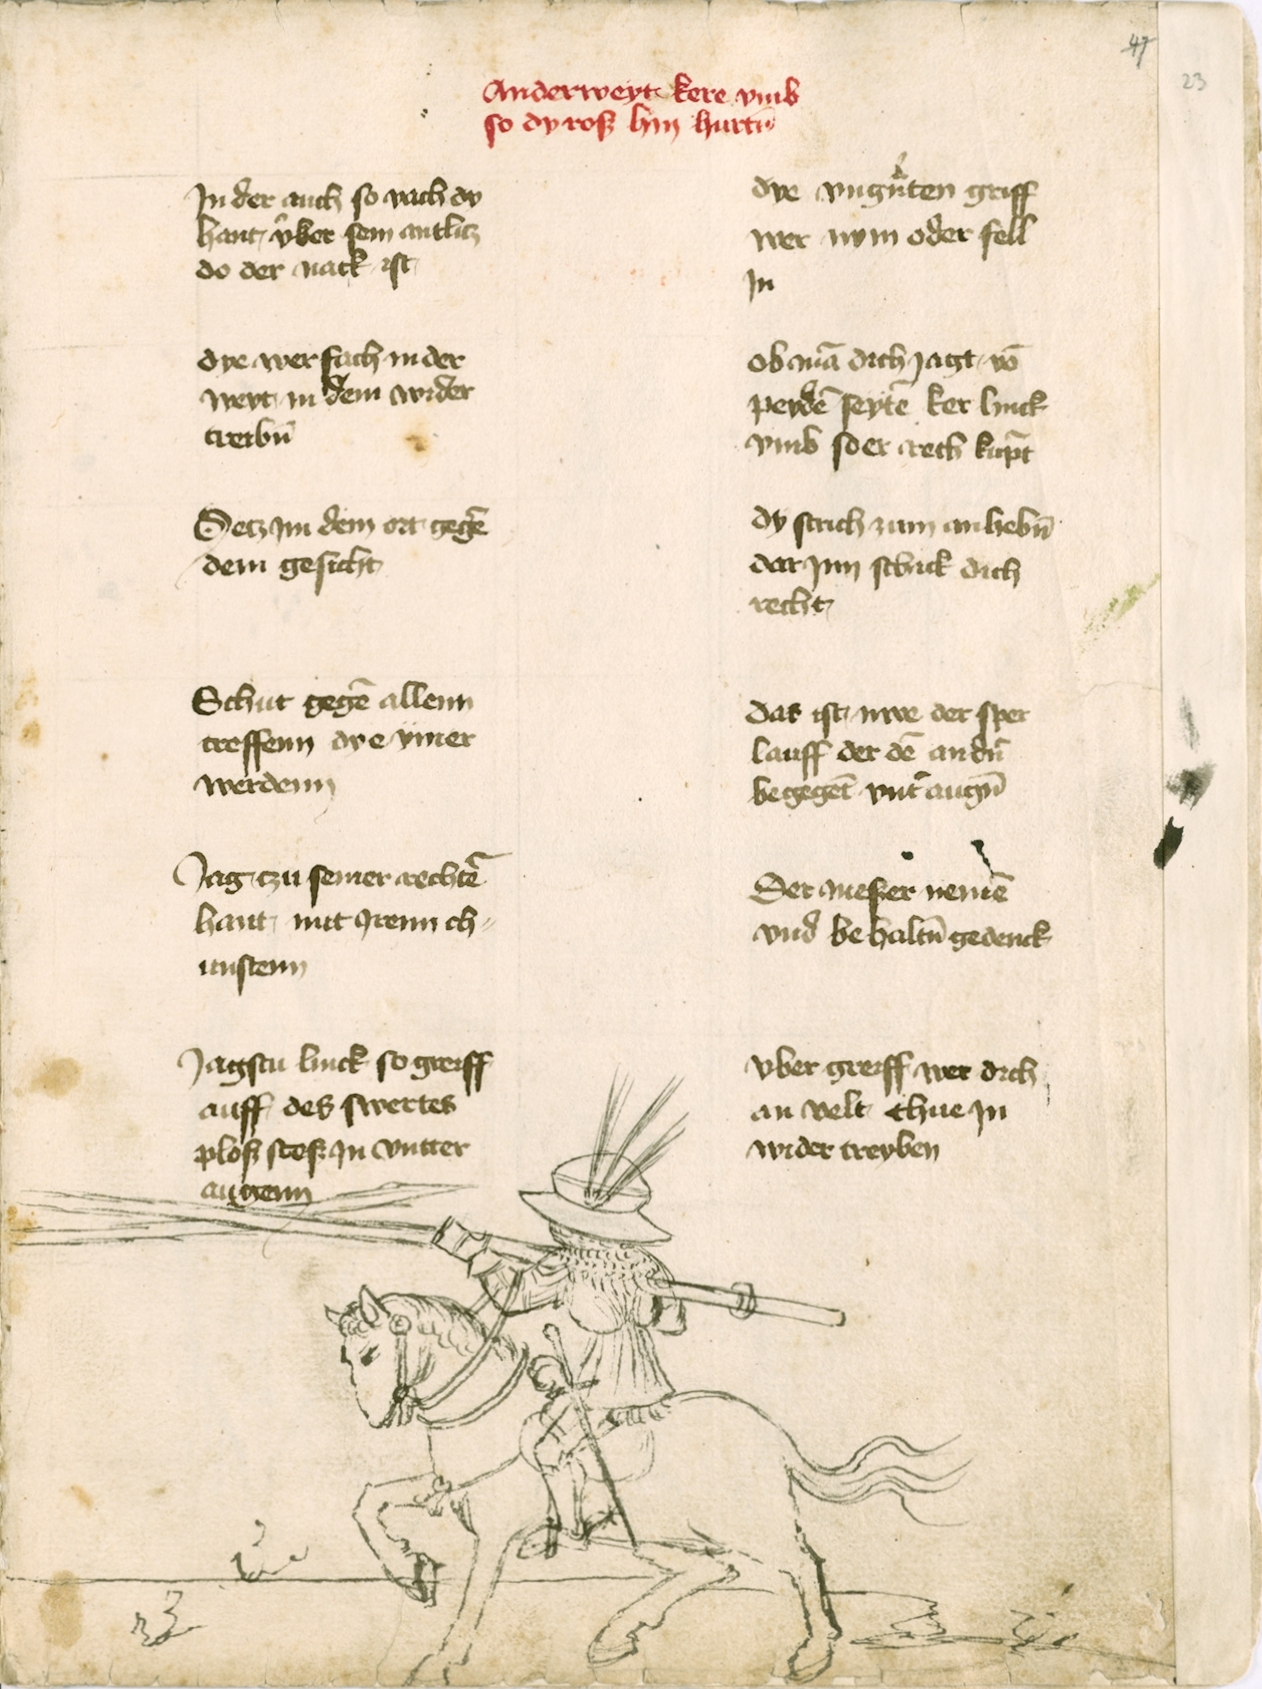 47
23
Anderweyt kere vmb
so dy roß hin hurtn̄
In der auch so vach dy
hant v̂ber sein antlitz
do der nack ist
dye wer fach in der
weyt in dem wider
treibn̄
Setz im dem ort gegē
dem gesicht
Schut gegē allenn
treffenn dye ymer
werdenn
Jag tzu seiner rechtē
hant mit Irenn ch-
unstenn
Jagstu linck so greiff
auff des swertes
ploß stoß In vntter
augenn
dye vngůten griff
wer nym oder fell
In
ob mā dich Jagt vō
peydē seytē ker linck
vmb so er rech kūpt
dy strich zum anhebn̄
dar Inn schick dich
recht
das ist nwe der sper
lauff der dē andn̄
begegēt vnt̄ augn̄
Der messer nemē
vnd behaltn̄ gedenck
vber greiff wer dich
an velt thue In
wider treyben